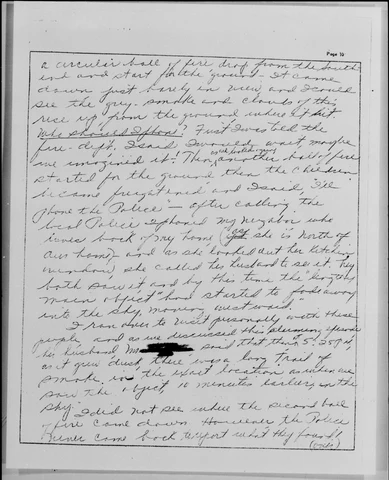 Page 10
a circular ball of fire drop from the South
end and start for the ground - It came
down just barely in view and I could
see the grey smoke and clouds of this
rise up from the ground where it hit.
Who should I phone? First I was told the
fire-dept, I said I would wait, maybe
we imagined it! Then, another ball of fire
started for the ground then the children
became frightened and I said, I'll
phone the Police - after calling the
local Police I phoned my neighbor who
lives back of my home (she is North of
our home) and as she looked out her kitchen
window she called her husband to see it. They
both saw it and by this time the lengthy
main object had started to fade away
into the sky, moving westward.
I ran over to visit personally with these
people and as we discussed this alarming episode
her husband M said that then 5:25 P.M.
as it grew dusk, there was a long trail of
smoke, in the exact location as when we
saw the object, 10 minutes earlier, in the
sky.
I did not see where the second ball
of fire came down. However the Police
never came back to report what they found!
(over)